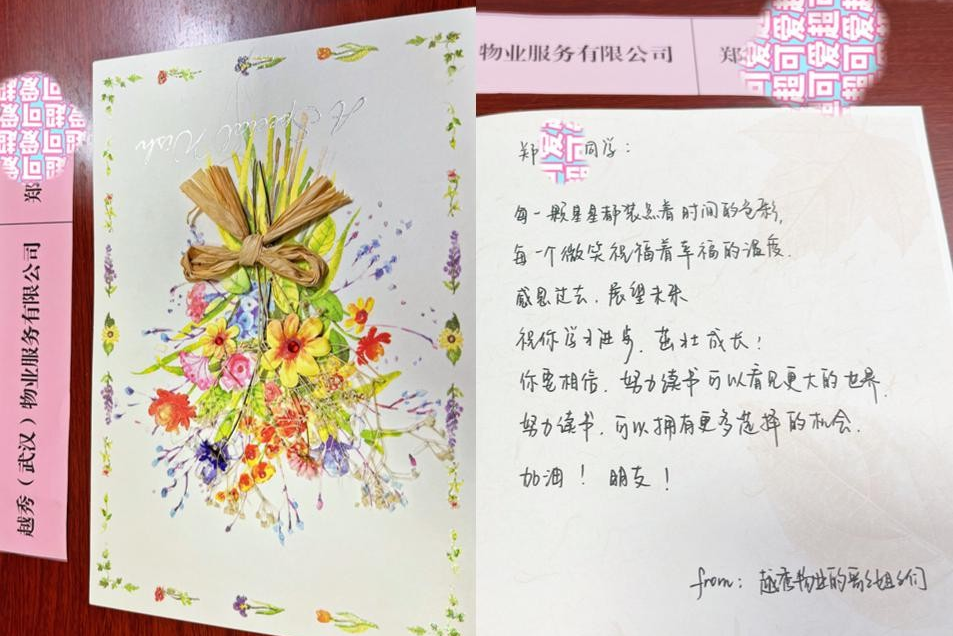 越秀（武汉）物业服务有限公司
郑
A Special Wish
物业服务有限公司
郑
超可爱
郑 同学：
每一颗星星都装点着时间的色彩，
每一个微笑祝福着幸福的温度.
感恩过去.展望未来
祝你学习进步，茁壮成长！
你要相信.努力读书可以看见更大的世界.
努力读书.可以拥有更多选择的机会.
加油！朋友！
from：越秀物业的哥哥姐姐们